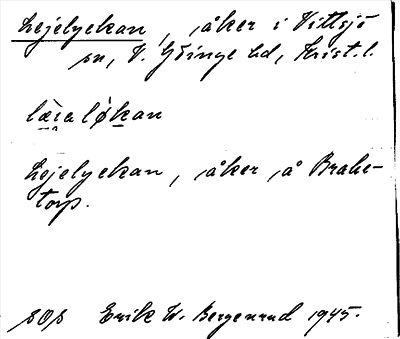 Lejelyckan, åker i Vittsjö
sn, V. Göinge hd, Krist. l.
læ̀ıa lø̀kan
Lejelyckan, åker å Brake-
torp.
SOS Erik W. Bergenrud 1945.